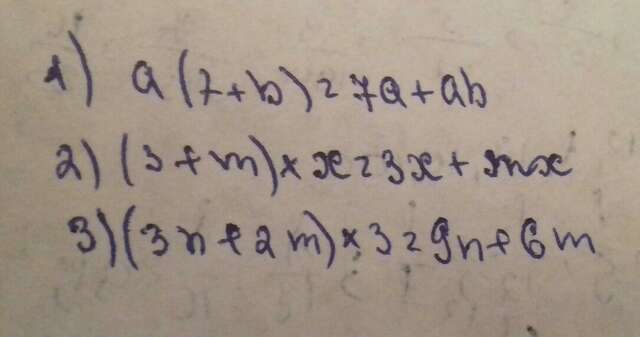 1) a(7+b)=7a+ab
2) (3+m)×x=3x+mx
3) (3n+2m)×3=9n+6m